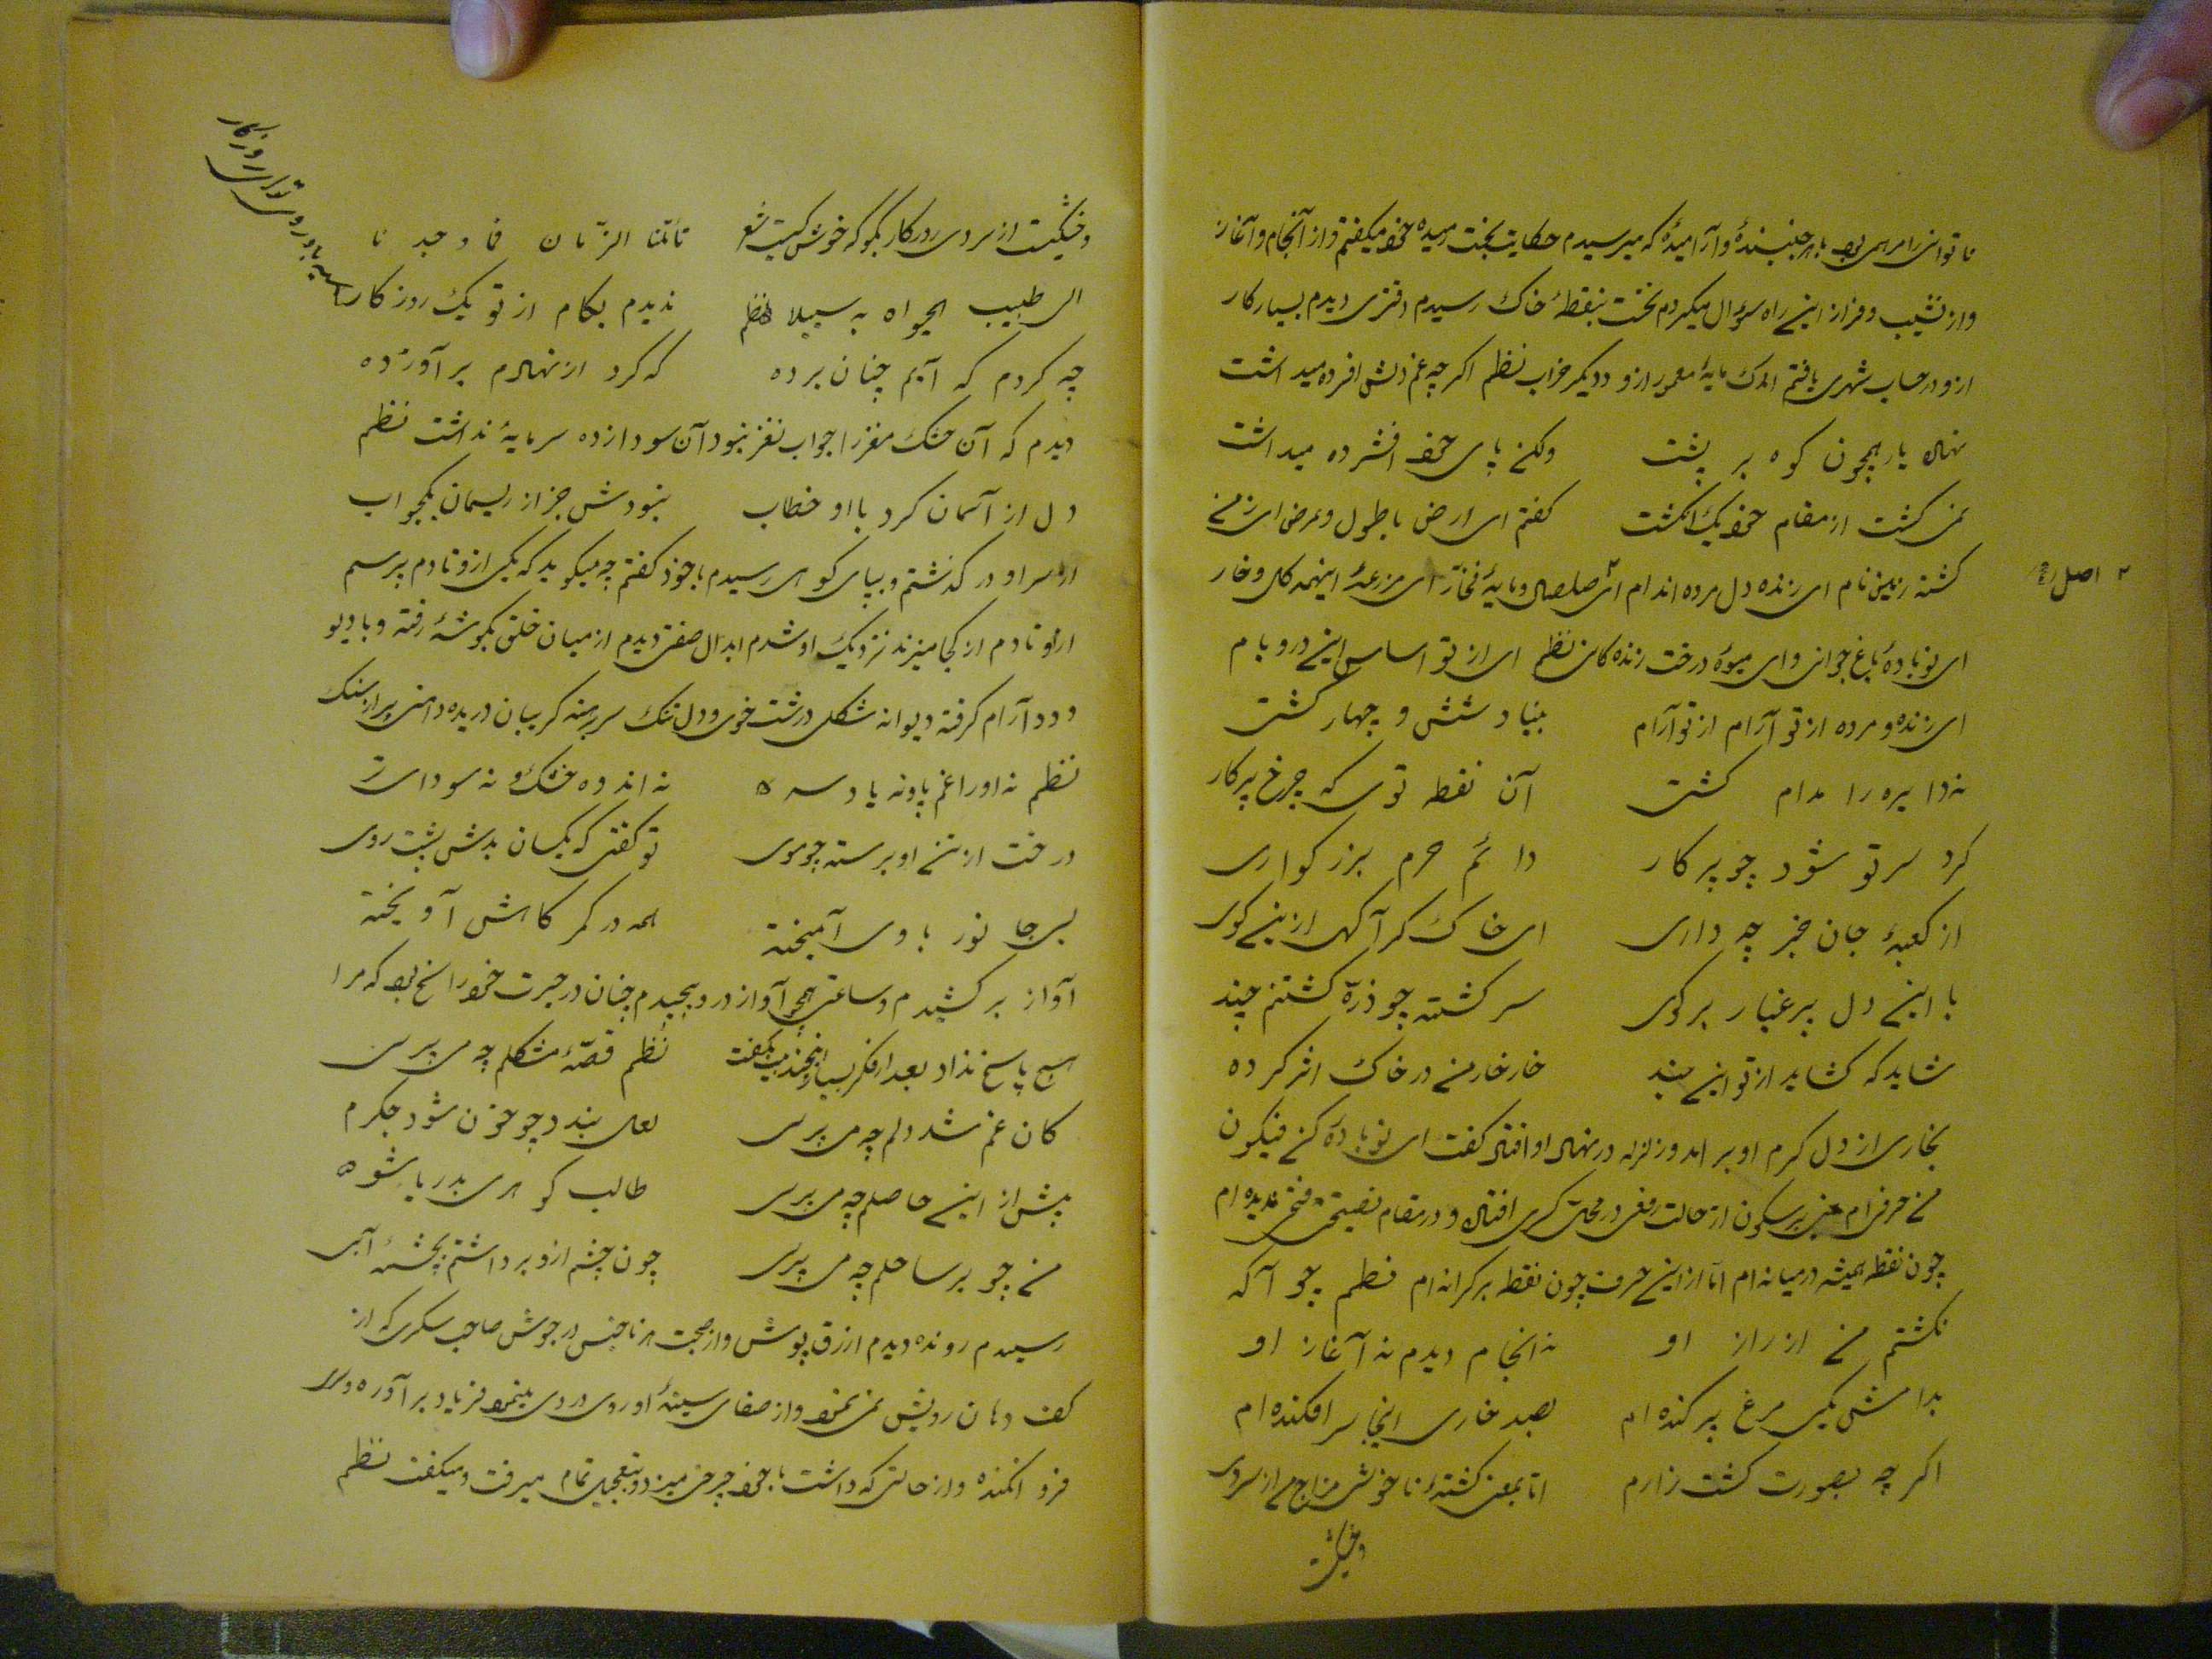 ناتوان را مراسی بود با هر جنبندهٔ و آرامیدهٔ که میرسیدم حکایت بخت رمیده خود میکفتم و از آنجام و آغاز
و از نشیب و فراز این راه سؤال میکردم نخست بنقطهٔ خاک رسیدم دفتری دیدم بسیار کار
ازو در حساب شهری یافتم اندک مایهٔ معمور ازو و دیکر خراب نظم اکر چه غم دلش افسرده میداشت
نهاده بار همچون کوه بر پشت ولکن پای خود افشرده میداشت
نمی کشت از مقام خود یک انکشت کفتم ای ارض با طول و عرض ای زمن
کشته زمین نام ای زنده دل مرده اندام ای صلصال و مایهٔ فخار ای مزرعهٔ اینهمه کل و خار
۲ اصل
ای نوباوهٔ باغ جوانی وای میوهٔ درخت زنده کانی نظم ای از تو اساس این در و بام
ای زنده و مرده از تو آرام از تو آرام بنیاد شش و چهار کشت
نه دایره را مدام کشت آن نقطه توی که چرخ پرکار
کرد سر تو شود چو پرکار دائم حرم بزرکواری
از کعبهٔ جان خبر چه داری ای خاک کر آکهی ازین کوی
با این دل پر غبار بر کوی سر کشته چو ذرّه کشتنم چند
شاید که کشاید از تو این بند خار خار من در خاک اثر کرده
بخاری از دل کرم او بر آمد و زلزله در نهاد او افتاد کفت ای نوباوهٔ کن فیکون
من حرفی ام مبنی بر سکون از حالت رفعی در محلّ کسری افتاده و در مقام نصیحت فتحی ندیده ام
چون نقطه همیشه در میانه ام امّا ازین حرف چون نقطه بر کرانه ام نظم چو آکه
نکشتم من از راز او نه انجام دیدم نه آغاز او
بدامش یکی مرغ پر کنده ام بصد خاری اینجا سر افکنده ام
اکر چه بصورت کشت زارم امّا بمعنی کشتهٔ ناخوش مزاج من از سردی
و خشکیت
و خشکیت از سردی روزکار بکو که خوش کیست شعر نائمنا الزّمان فاوجدنا
الی طبیب الحیواه به سبیلا نظم ندیدم بکام از تو یک روزکار
سیه باد روی تو ای روزکار
چه کردم که آبم چنان برده که کرد از نهادم بر آورده
دیدم که آن خشک مغز را جواب نغز نبود آن سودا زده سرمایهٔ نداشت نظم
دل از آسمان کرد با او خطاب نبودش جز از ریسمان یکجواب
از سر او در کذشتم و بپای کوهی رسیدم با خود کفتم چه میکوید که یکی از اوتادم پرسم
از اوتادم از کجا میزند نزدیک او شدم ابدال صفتی دیدم از میان خلق بکوشهٔ رفته و با دیو
و دد آرام کرفته دیوانه شکلی درشت خوی و دل تنک سر برهنه کریبان دریده دامنی پر از سنک
نظم نه او را غم پا و نه یاد سر نه اندوه خشک و نه سودای تر
درخت از تن او برسته چو موی تو کفتی که یکسان بدش پشت روی
بسی جانور با وی آمیخته همه در کمر کاهش آویخته
آواز بر کشیدم و ساعتی همچو آواز درو پیچیدم چنان در حیرت خود راسخ بود که مرا
هیچ پاسخ نداد بعد از فکر بسیار بخندید کفت نظم قصّهٔ مشکلم چه می پرسی
کان غم شد دلم چه می پرسی لعل بندد چو خون شود جکرم
پیش از این حاصلم چه می پرسی طالب کوهری بدریا شو
من چو بر ساحلم چه می پرسی چون چشم ازو برداشتم بچشمهٔ آبی
رسیدم رونده دیدم ازرق پوش و از صحبت هر ناجنس در جوش صاحب سکری که از
کف دهان رویش نمی نمود و از صفای سینهٔ او روی در وی مینمود فریاد بر آورده و
فرو افکنده و از حالتی که داشت با خود چرخی میزد و بتعجیل تمام میرفت و میکفت نظم